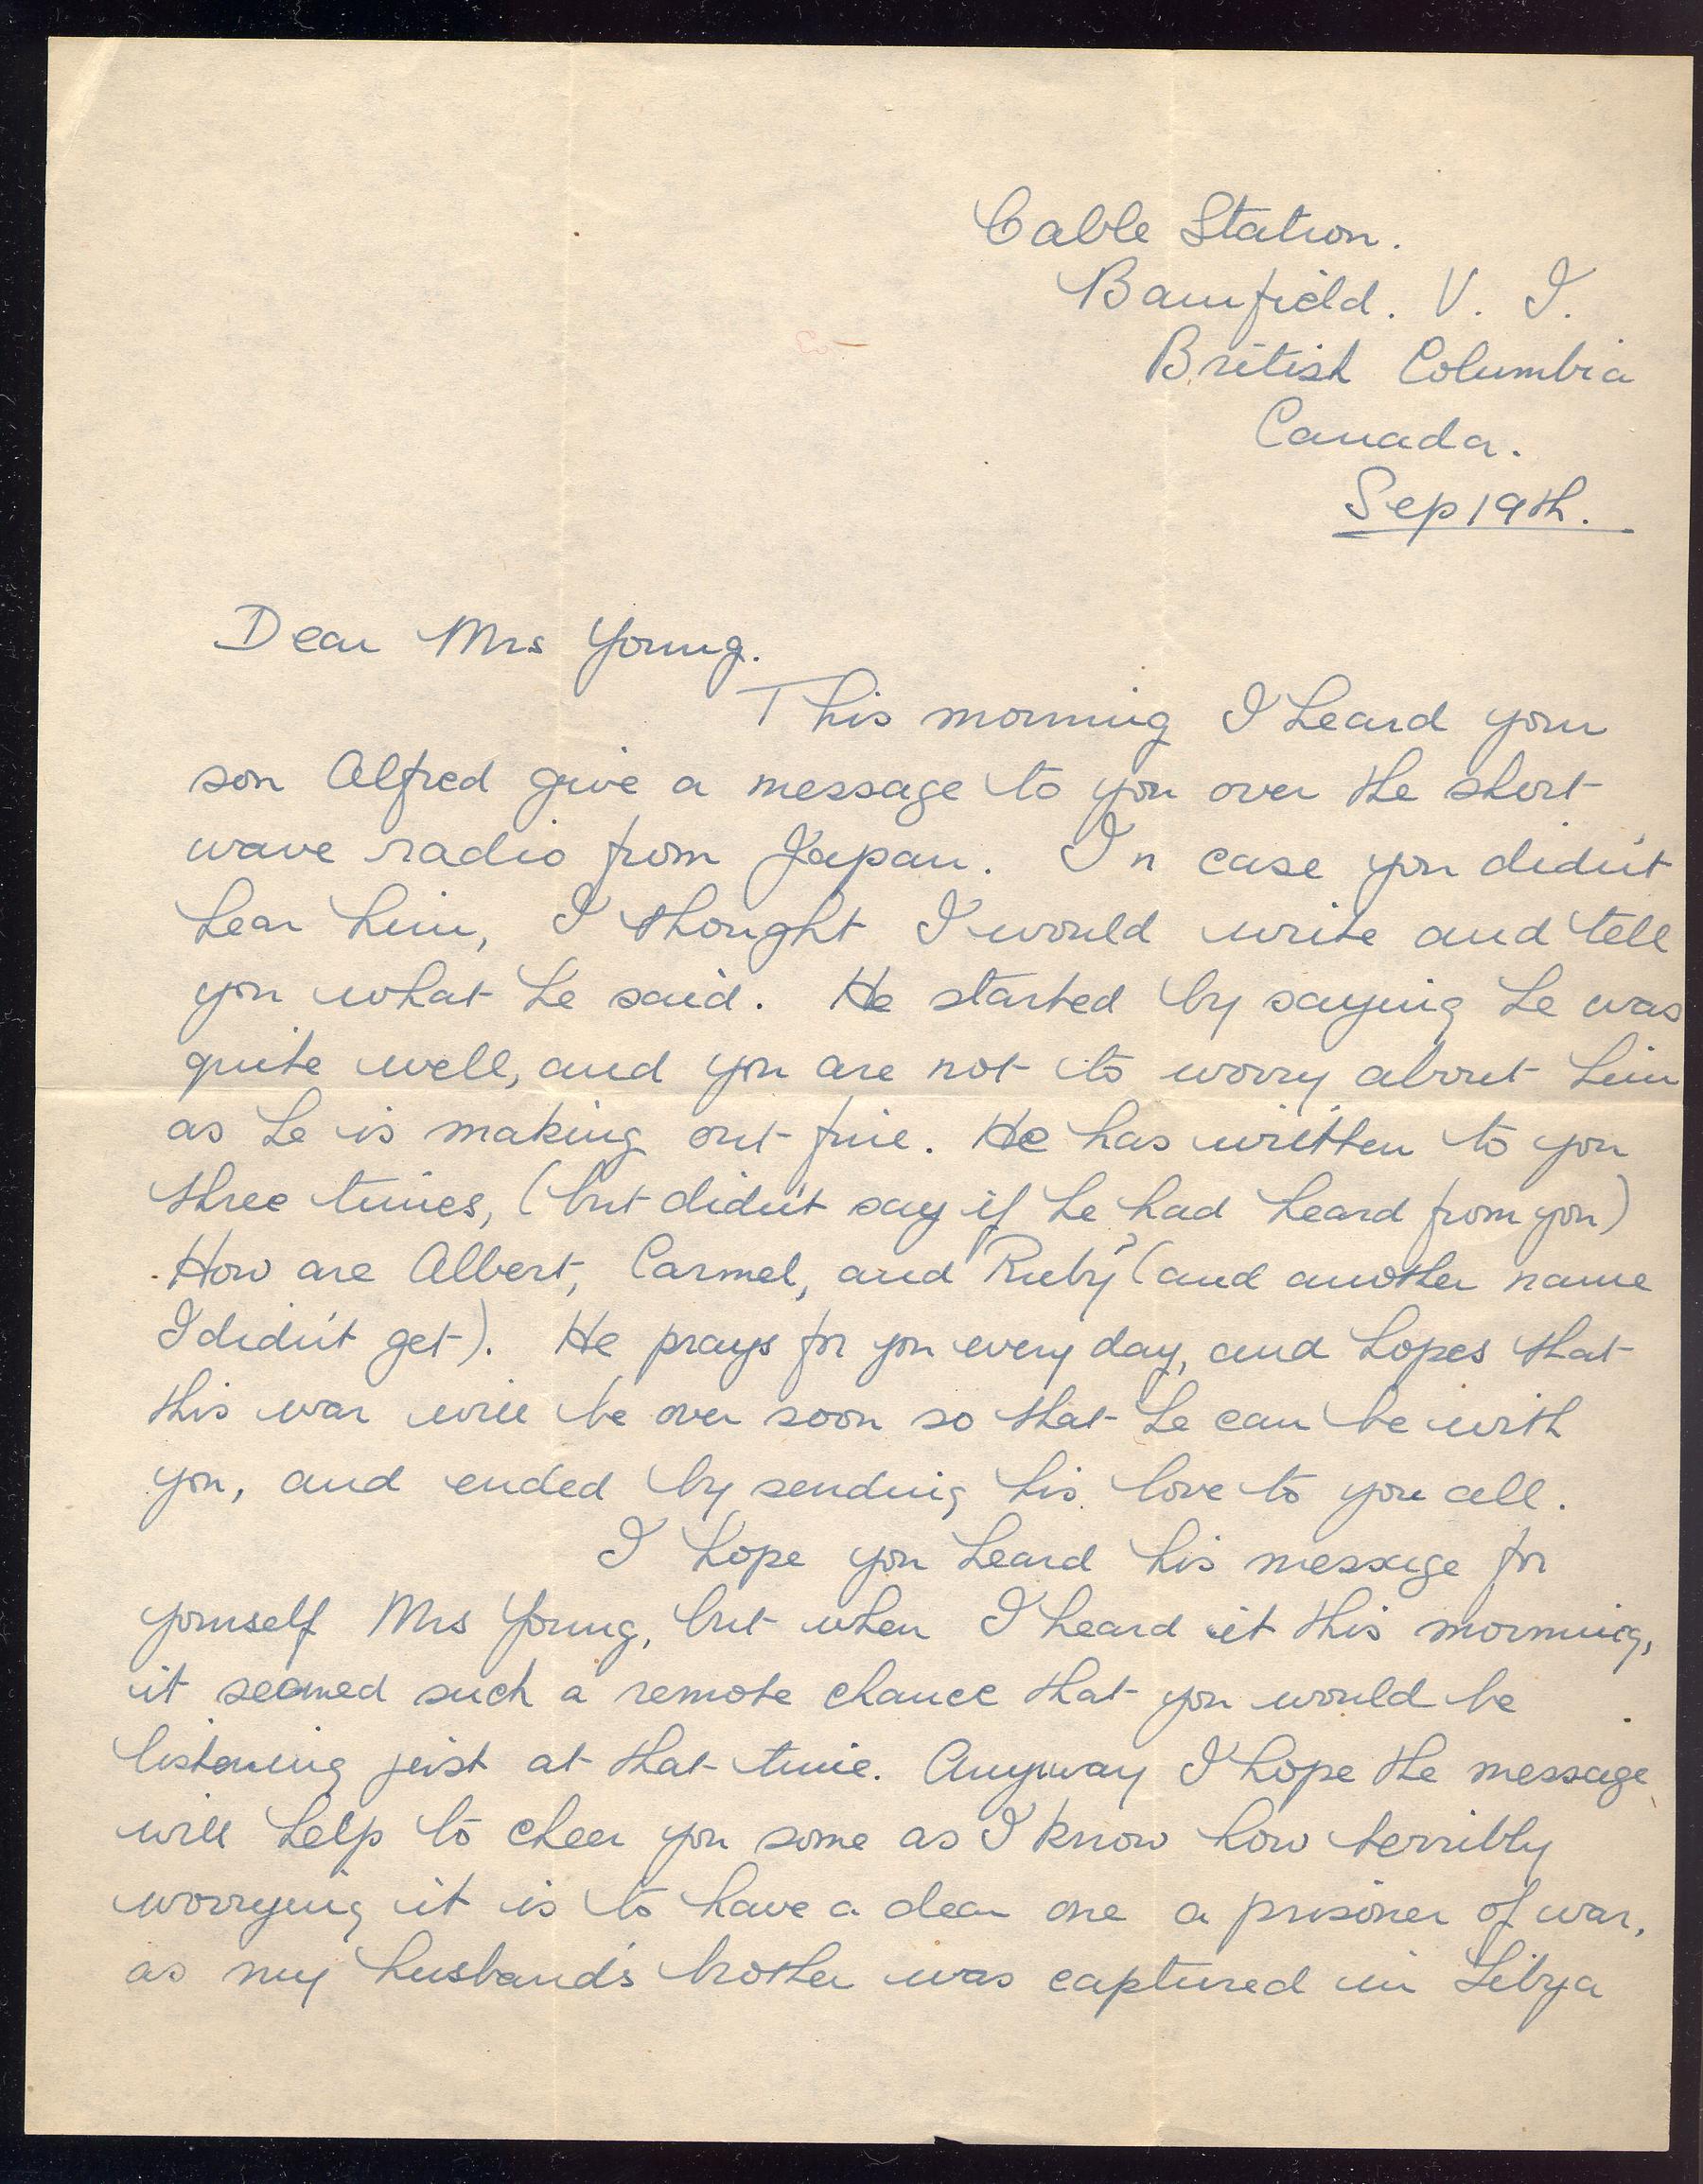 Cable Station.
Bamfield. V. I.
British Columbia
Canada.
Sep 19th.
Dear Mrs Young.
This morning I heard your
son Alfred give a message to you over the short
wave radio from Japan. In case you didn't
hear him, I thought I would write and tell
you what he said. He started by saying he was
quite well, and you are not to worry about him
as he is making out fine. He has written to you
three times, (but didn't say if he had heard from you)
How are Albert, Carmel, and "Ruby"? (and another name
I didn't get). He prays for you every day, and hopes that
this war will be over soon so that he can be with
you, and ended by sending his love to you all.
I hope you heard his message for
yourself Mrs Young, but when I heard it this morning,
it seemed such a remote chance that you would be
listening just at that time. Anyway I hope the message
will help to cheer you some as I know how terribly
worrying it is to have a dear one a prisoner of war,
as my husband's brother was captured in Libya